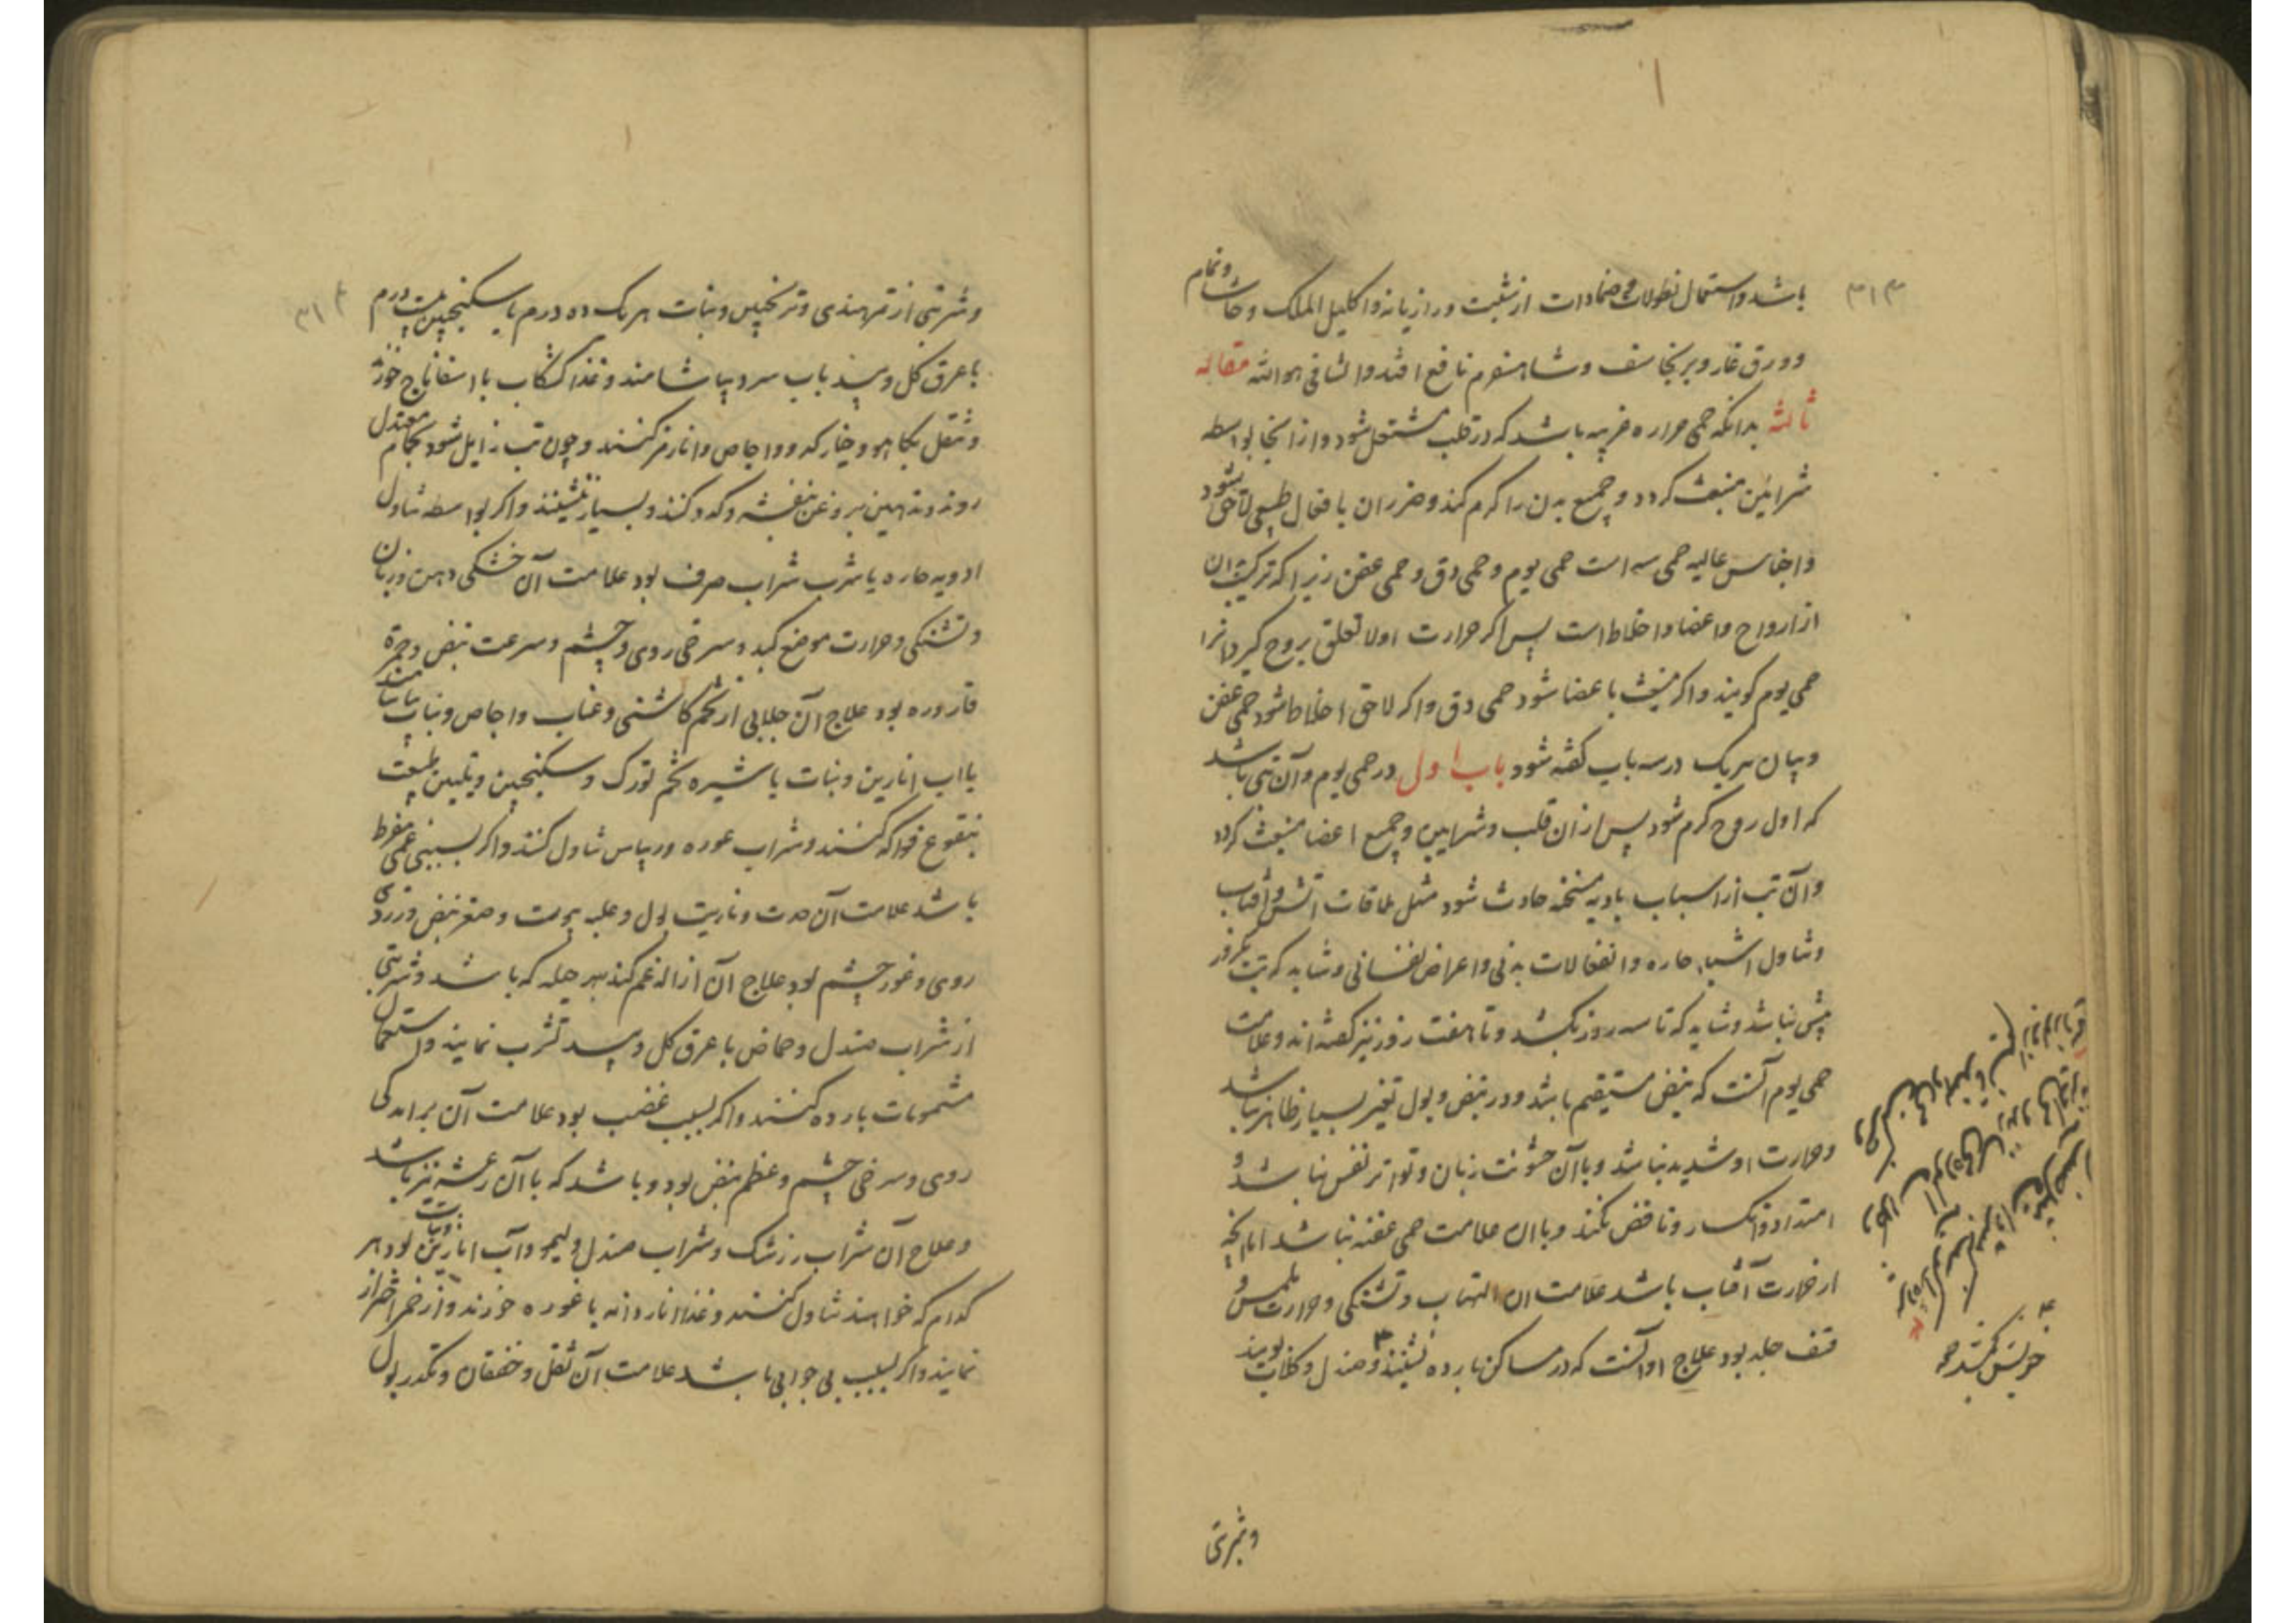 ۳۱۳
باشد و استعمال نطولات و ضمادات از شبت و رازیانه و اکلیل الملک و حاشا و نمام
و ورق غار و برنجاسف و شاهسفرم نافع افتد و الشافی هو الله مقاله
ثالثه بدانکه حمی حراره غریبه باشد که در قلب مشتعل شود و از انجا بواسطه
شرائین منبعث کردد و جمیع بدن را کرم کند و ضرر ان با فعال طبیعی لاحق شود
و اجناس عالیه حمی سه است حمی یوم و حمی دق و حمی عفن زیرا که ترکیب بدن
از ارواح و اعضا و اخلاط است پس اکر حرارت اولا تعلق بروح کیرد انرا
حمی یوم کویند و اکر منبعث با عضا شود حمی دق و اکر لاحق اخلاط شود حمی عفن
و بیان هریک در سه باب کفته شود باب اول در حمی یوم و آن تبی باشد
که اول روح کرم شود پس از ان قلب و شرایین و جمیع اعضا منبعث کردد
و آن تب از اسباب بادیه مسخنه حادث شود مثل ملاقات اتش و آفتاب
و تناول اشیاء حاره و انفعالات بدنی و اعراض نفسانی و شاید که تب یکروز
بیش نباشد و شاید که تا سه روز بکشد و تا هفت روز نیز کفته اند و علامت
حمی یوم آنست که نبض مستقیم باشد و در نبض و بول تغیر بسیار ظاهر نباشد
و حرارت او شدید نباشد و با آن خشونت زبان و تواتر نفس نباشد و
امتداد و انکسار و نافض نکند و با ان علامت حمی عفنه نباشد اما انچه
از حرارت آفتاب باشد علامت ان التهاب و تشنکی و حرارت ملمس و
قشف جلد بود علاج او آنست که در مساکن بارده نشینند و صندل و کلاب بویند
خویش کشند
و شربتی
۳۱۴
و شربتی از تمر هندی و ترنجبین و نبات هریک ده درم با سکنجبین بیست درم
با عرق کل و بید باب سرد بیاشامند و غذا کشکاب با اسفاناج خورند
و تنقل بکاهو و خیار کدو و اجاص و انار مز کنند و چون تب زایل شود بحمام معتدل
روند و تدهین بروغن بنفشه و کدو کنند و بسیار ننشینند و اکر بواسطه تناول
ادویه حاره یا شرب شراب صرف بود علامت آن خشکی دهن و زبان
و تشنکی و حرارت موضع کبد و سرخی روی و چشم و سرعت نبض و حمرة
قاروره بود علاج آن جلابی از تخم کاشنی و عناب و اجاص و نبات بیاشامند
یا اب انارین و نبات با شیره تخم تورک و سکنجبین و تلیین طبیعت
بنقوع فواکه کنند و شراب غوره و ریباس تناول کنند و اکر بسبب غمی مفرط
باشد علامت آن حدت و ناریت بول و غلبه یبوست و صغر نبض و زردی
روی و غور چشم بود علاج آن ازاله غم کند بهر حیله که باشد و شربتی
از شراب صندل و حماض با عرق کل و بید تشرب نمایند و استعمال
مشمومات بارده کنند و اکر بسبب غضب بود علامت آن برامدکی
روی و سرخی چشم و عظم نبض بود و باشد که با آن رعشه نیز باشد
و علاج آن شراب زرشک و شراب صندل و لیمو و آب انارین و نبات بود هر
کدام که خواهند تناول کنند و غذا ناردانه با غوره خورند و از خمر احتراز
نمایند و اکر بسبب بی خوابی باشد علامت آن ثقل و خفقان و تکدر بول